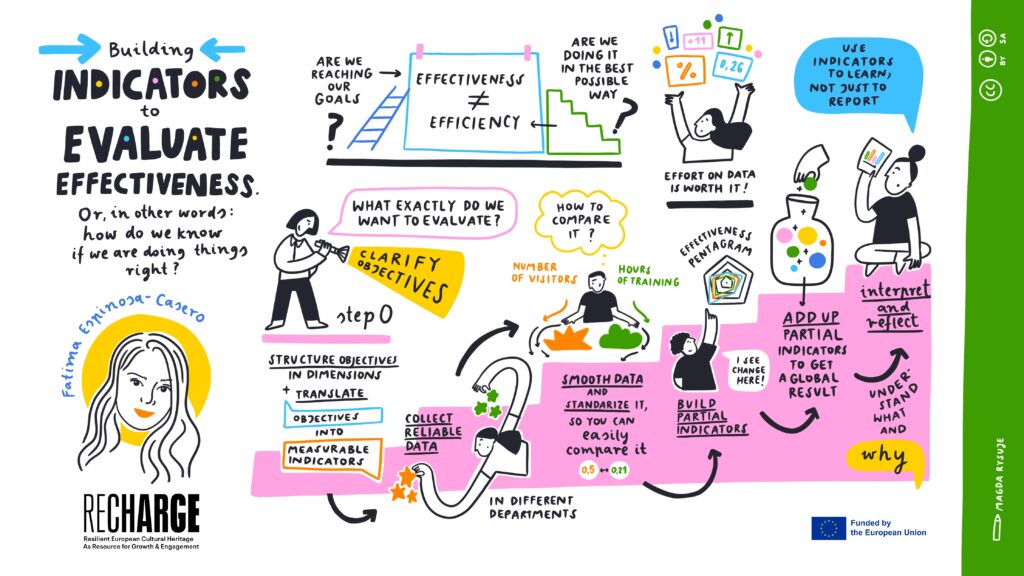 Building
INDICATORS
to
EVALUATE
EFFECTIVENESS.
Or, in other words:
how do we know
if we are doing things
right?
Fatima Espinosa-Casero
RECHARGE
Resilient European Cultural Heritage
As Resource for Growth & Engagement
ARE WE
REACHING
OUR
GOALS
?
EFFECTIVENESS
≠
EFFICIENCY
ARE WE
DOING IT
IN THE BEST
POSSIBLE
WAY
?
↓
+11
↑
%
0,26
EFFORT ON DATA
IS WORTH IT!
USE
INDICATORS
TO LEARN,
NOT JUST TO
REPORT
WHAT EXACTLY DO WE
WANT TO EVALUATE?
CLARIFY
OBJECTIVES
step 0
STRUCTURE OBJECTIVES
IN DIMENSIONS
+ TRANSLATE
OBJECTIVES
INTO
MEASURABLE
INDICATORS
COLLECT
RELIABLE
DATA
IN DIFFERENT
DEPARTMENTS
HOW TO
COMPARE
IT ?
NUMBER
OF VISITORS
HOURS
OF TRAINING
SMOOTH DATA
AND
STANDARIZE IT,
SO YOU CAN
easily
compare it
0,5 ↔ 0,21
EFFECTIVENESS
PENTAGRAM
I SEE
CHANGE
HERE!
BUILD
PARTIAL
INDICATORS
ADD UP
PARTIAL
INDICATORS
TO GET
A GLOBAL
RESULT
interpret
and
reflect
UNDER-
STAND
WHAT
AND
why
Funded by
the European Union
CC BY SA
MAGDA RYSUJE